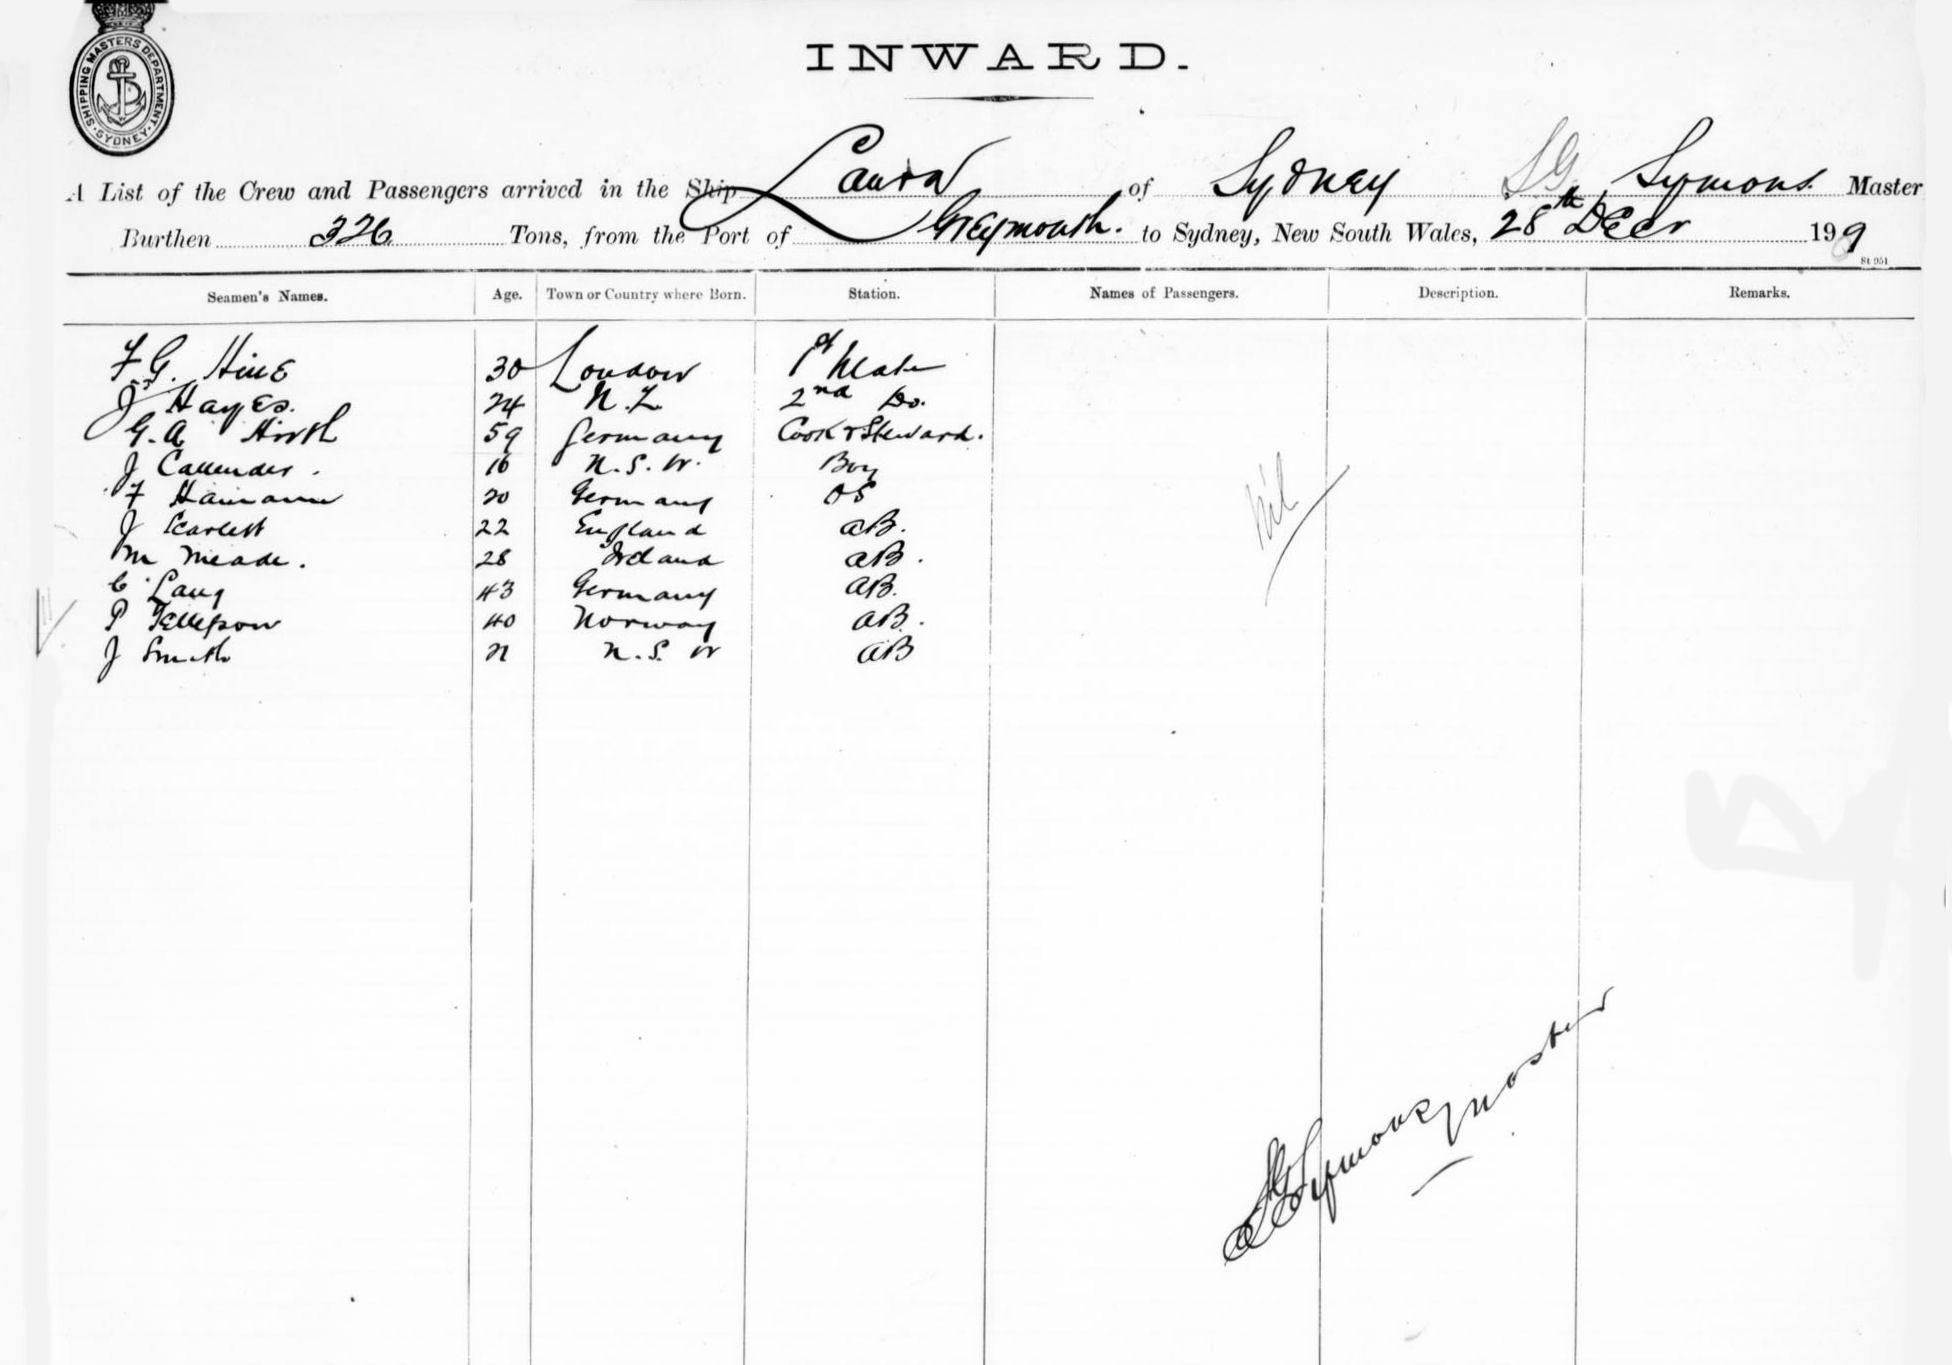 SHIPPING MASTERS DEPARTMENT
SYDNEY
INWARD.
A List of the Crew and Passengers arrived in the Ship Laura of Sydney SG Symons. Master
Burthen 326 Tons, from the Port of Greymouth. to Sydney, New South Wales, 28th Decr 1909
St 951
Seamen's Names. Age. Town or Country where Born. Station. Names of Passengers. Description. Remarks.
F G. Hine 30 London 1st Mate
J Hayes. 24 N.Z. 2nd Do.
G. A Hirth 59 Germany Cook & Steward.
J Callender. 16 N.S.W. Boy
F Hamann 20 Germany OS
J Scarlett 22 England AB.
M Meade. 28 Ireland AB.
C Lang 43 Germany AB.
P Tellefson 40 Norway AB.
J Smith 21 N.S.W AB
Nil
SG Symons Master